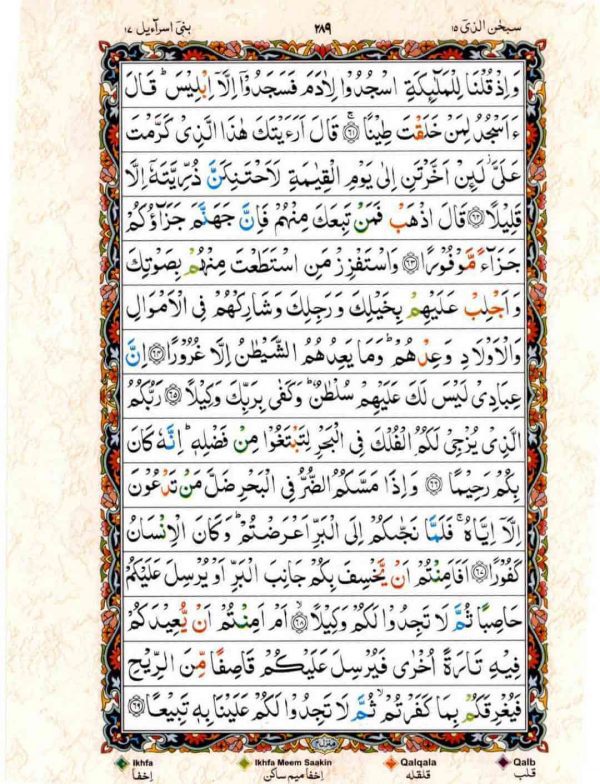 سبحٰن الذیٓ ۱۵
۲۸۹
بنیٓ اسرآءیل ۱۷
وَاِذْ قُلْنَا لِلْمَلٰٓئِكَةِ اسْجُدُوْا لِاٰدَمَ فَسَجَدُوْۤا اِلَّاۤ اِبْلِيْسَ ؕ قَالَ
ءَاَسْجُدُ لِمَنْ خَلَقْتَ طِيْنًا ۚ‏﴿۶۱﴾ قَالَ اَرَءَيْتَكَ هٰذَا الَّذِىْ كَرَّمْتَ
عَلَىَّ ؗ لَئِنْ اَخَّرْتَنِ اِلٰى يَوْمِ الْقِيٰمَةِ لَاَحْتَنِكَنَّ ذُرِّيَّتَهٗۤ اِلَّا
قَلِيْلًا ﴿۶۲﴾ قَالَ اذْهَبْ فَمَنْ تَبِعَكَ مِنْهُمْ فَاِنَّ جَهَنَّمَ جَزَآؤُكُمْ
جَزَآءً مَّوْفُوْرًا ﴿۶۳﴾ وَاسْتَفْزِزْ مَنِ اسْتَطَعْتَ مِنْهُمْ بِصَوْتِكَ
وَاَجْلِبْ عَلَيْهِمْ بِخَيْلِكَ وَرَجِلِكَ وَشَارِكْهُمْ فِى الْاَمْوَالِ
وَالْاَوْلَادِ وَعِدْهُمْ ؕ وَمَا يَعِدُهُمُ الشَّيْطٰنُ اِلَّا غُرُوْرًا ﴿۶۴﴾ اِنَّ
عِبَادِىْ لَيْسَ لَكَ عَلَيْهِمْ سُلْطٰنٌ ؕ وَكَفٰى بِرَبِّكَ وَكِيْلًا ﴿۶۵﴾ رَبُّكُمُ
الَّذِىْ يُزْجِىْ لَكُمُ الْفُلْكَ فِى الْبَحْرِ لِتَبْتَغُوْا مِنْ فَضْلِهٖ ؕ اِنَّهٗ كَانَ
بِكُمْ رَحِيْمًا ﴿۶۶﴾ وَاِذَا مَسَّكُمُ الضُّرُّ فِى الْبَحْرِ ضَلَّ مَنْ تَدْعُوْنَ
اِلَّاۤ اِيَّاهُ ۚ فَلَمَّا نَجّٰٮكُمْ اِلَى الْبَرِّ اَعْرَضْتُمْ ؕ وَكَانَ الْاِنْسَانُ
كَفُوْرًا ﴿۶۷﴾ اَفَاَمِنْتُمْ اَنْ يَّخْسِفَ بِكُمْ جَانِبَ الْبَرِّ اَوْ يُرْسِلَ عَلَيْكُمْ
حَاصِبًا ثُمَّ لَا تَجِدُوْا لَكُمْ وَكِيْلًا ۙ‏﴿۶۸﴾ اَمْ اَمِنْتُمْ اَنْ يُّعِيْدَكُمْ
فِيْهِ تَارَةً اُخْرٰى فَيُرْسِلَ عَلَيْكُمْ قَاصِفًا مِّنَ الرِّيْحِ
فَيُغْرِقَكُمْ بِمَا كَفَرْتُمْ ۙ ثُمَّ لَا تَجِدُوْا لَكُمْ عَلَيْنَا بِهٖ تَبِيْعًا ﴿۶۹﴾
Ikhfa
اخفا
Ikhfa Meem Saakin
اخفا میم ساکن
Qalqala
قلقله
Qalb
قلب